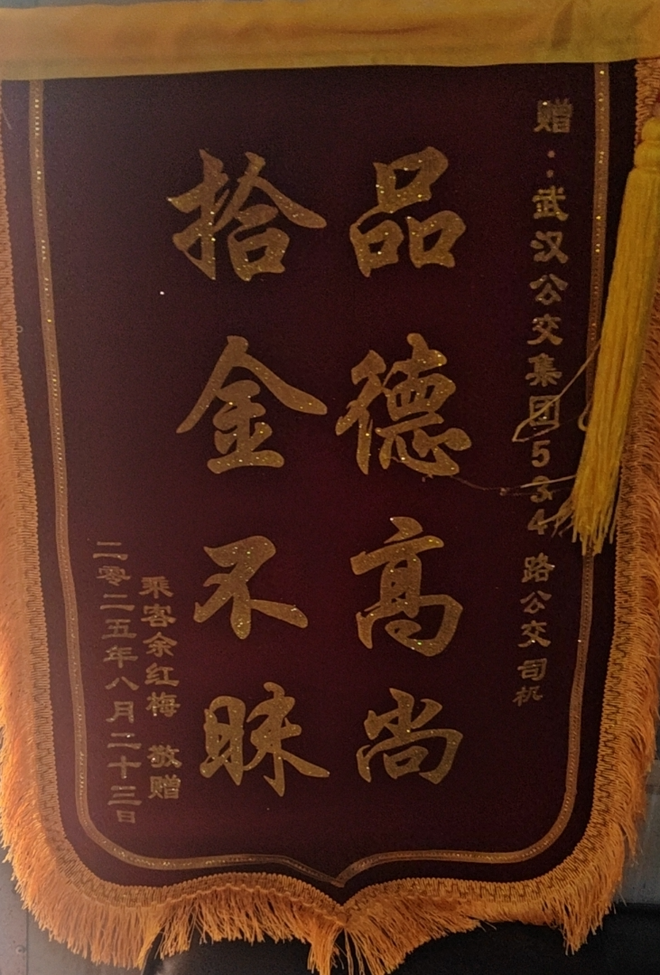 赠：武汉公交集团534路公交司机
品德高尚
拾金不昧
乘客余红梅 敬赠
二零二五年八月二十三日